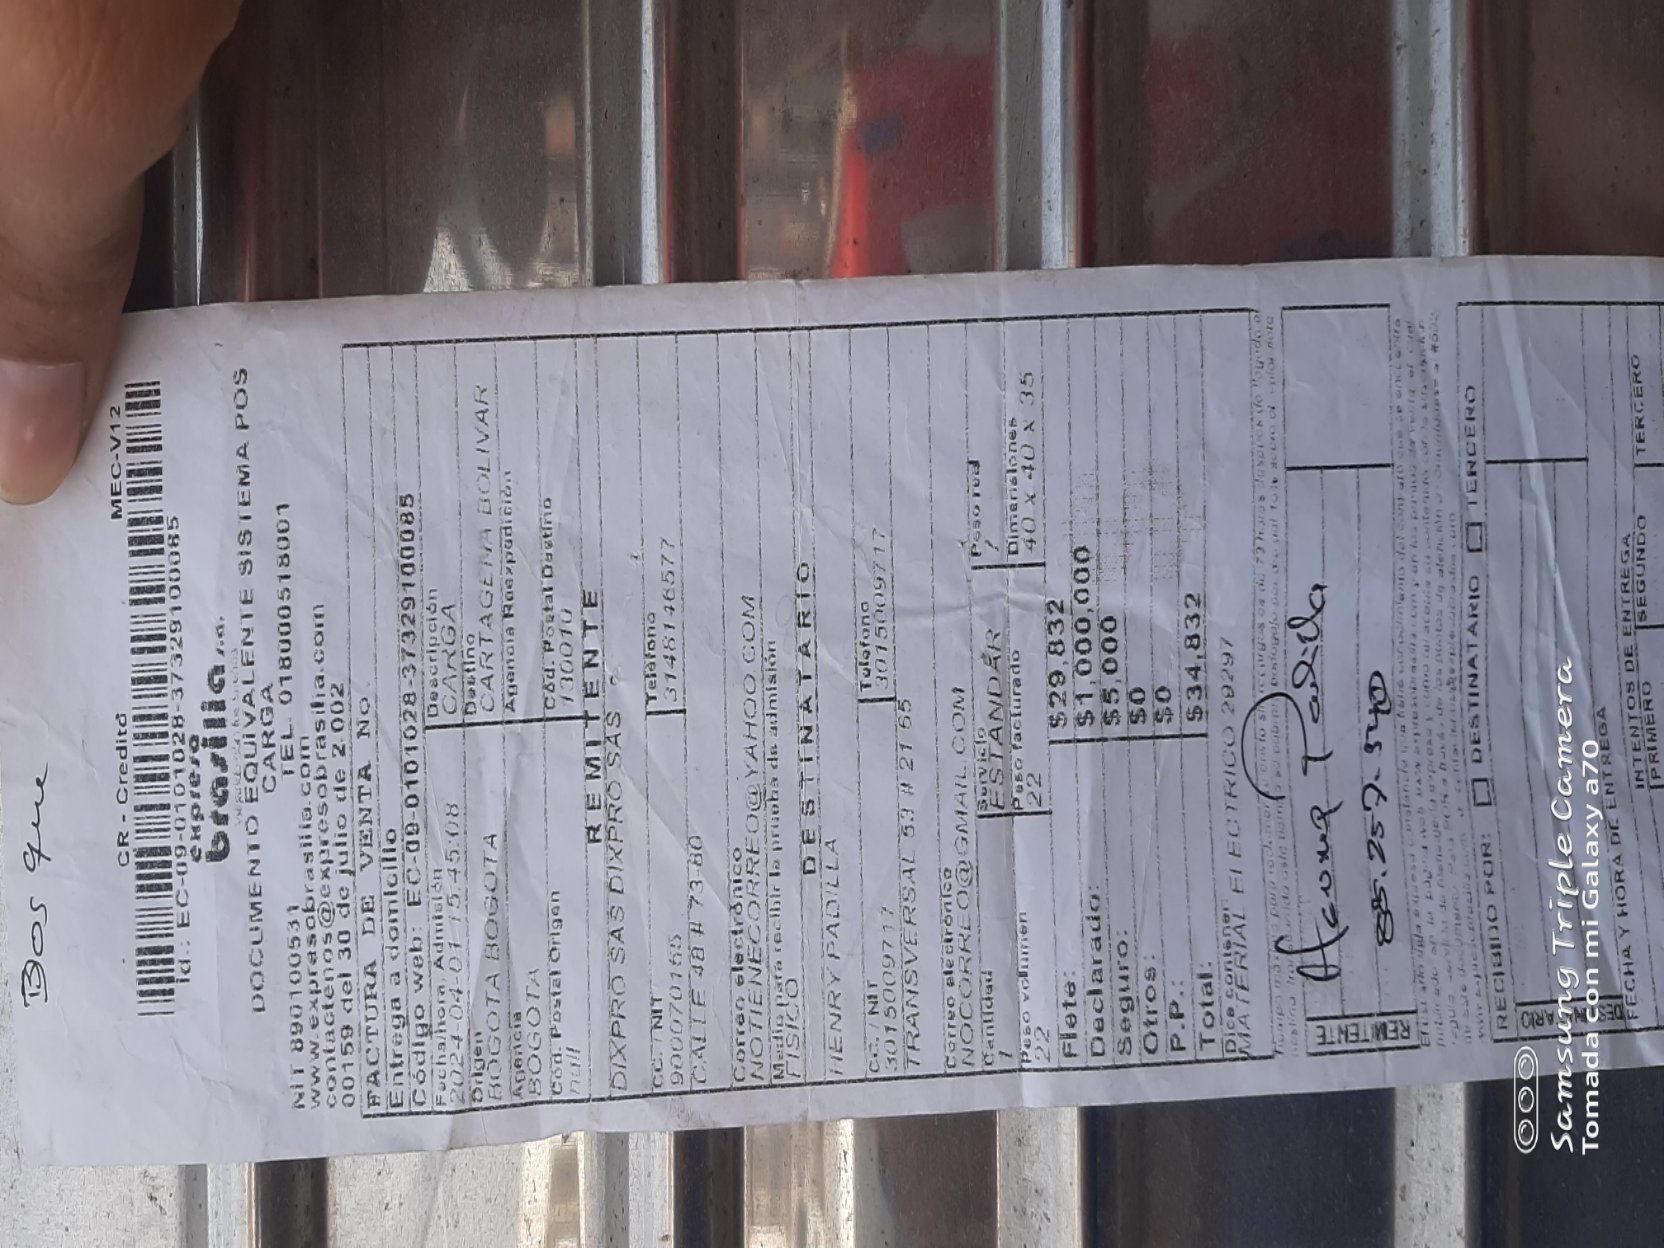 Bos que
CR - Credito MEC-V12
Id.: EC-09-0101028-3732910​0085
expreso
brasilia s.a.
DOCUMENTO EQUIVALENTE SISTEMA POS
CARGA
NIT 890100531 TEL. 018000518001
www.expresobrasilia.com
contactenos@expresobrasilia.com
00159 del 30 de julio de 2.002
FACTURA DE VENTA No
Entrega a domicilio
Código web: EC-09-0101028-37329100085
Fecha/hora Admisión Descripción
2024-04-01 15:45:08 CARGA
Origen Destino
BOGOTA BOGOTA CARTAGENA BOLIVAR
Agencia Agencia Reexpedición
BOGOTA
Cód. Postal Origen Cód. Postal Destino
null 130010
REMITENTE
DIXPRO SAS DIXPRO SAS
CC. / NIT Teléfono
900070155 3148146577
CALLE 48 # 73-80
Correo electrónico
NOTIENECORREO@YAHOO.COM
Medio para recibir la prueba de admisión
FISICO
DESTINATARIO
HENRY PADILLA
CC. / NIT Teléfono
3015009717 3015009717
TRANSVERSAL 53 # 21 55
Correo electrónico
NOCORREO@GMAIL.COM
Cantidad Servicio Peso real
1 ESTANDAR 7
Peso volumen Peso facturado Dimensiones
22 22 40 X 40 X 35
Flete: $29,832
Declarado: $1,000,000
Seguro: $5,000
Otros: $0
P.P.: $0
Total: $34,832
Dice contener
MATERIAL ELECTRICO 29297
REMITENTE
Henry Padilla
885.257-540
RECIBIDO POR: DESTINATARIO TERCERO
FECHA Y HORA DE ENTREGA
INTENTOS DE ENTREGA
PRIMERO SEGUNDO TERCERO
Samsung Triple Camera
Tomada con mi Galaxy a70